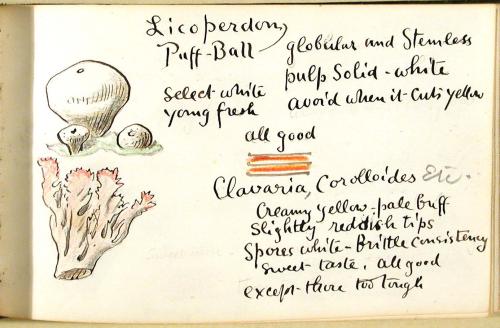 Licoperdon,
Puff-Ball
globular and Stemless
pulp Solid - white
avoid when it cuts yellow
Select-white
young fresh
all good
Clavaria, Corolloides Etc.
Creamy yellow - pale buff
Slightly reddish tips
Spores white - Brittle consistency
Sweet taste, all good
except those too tough